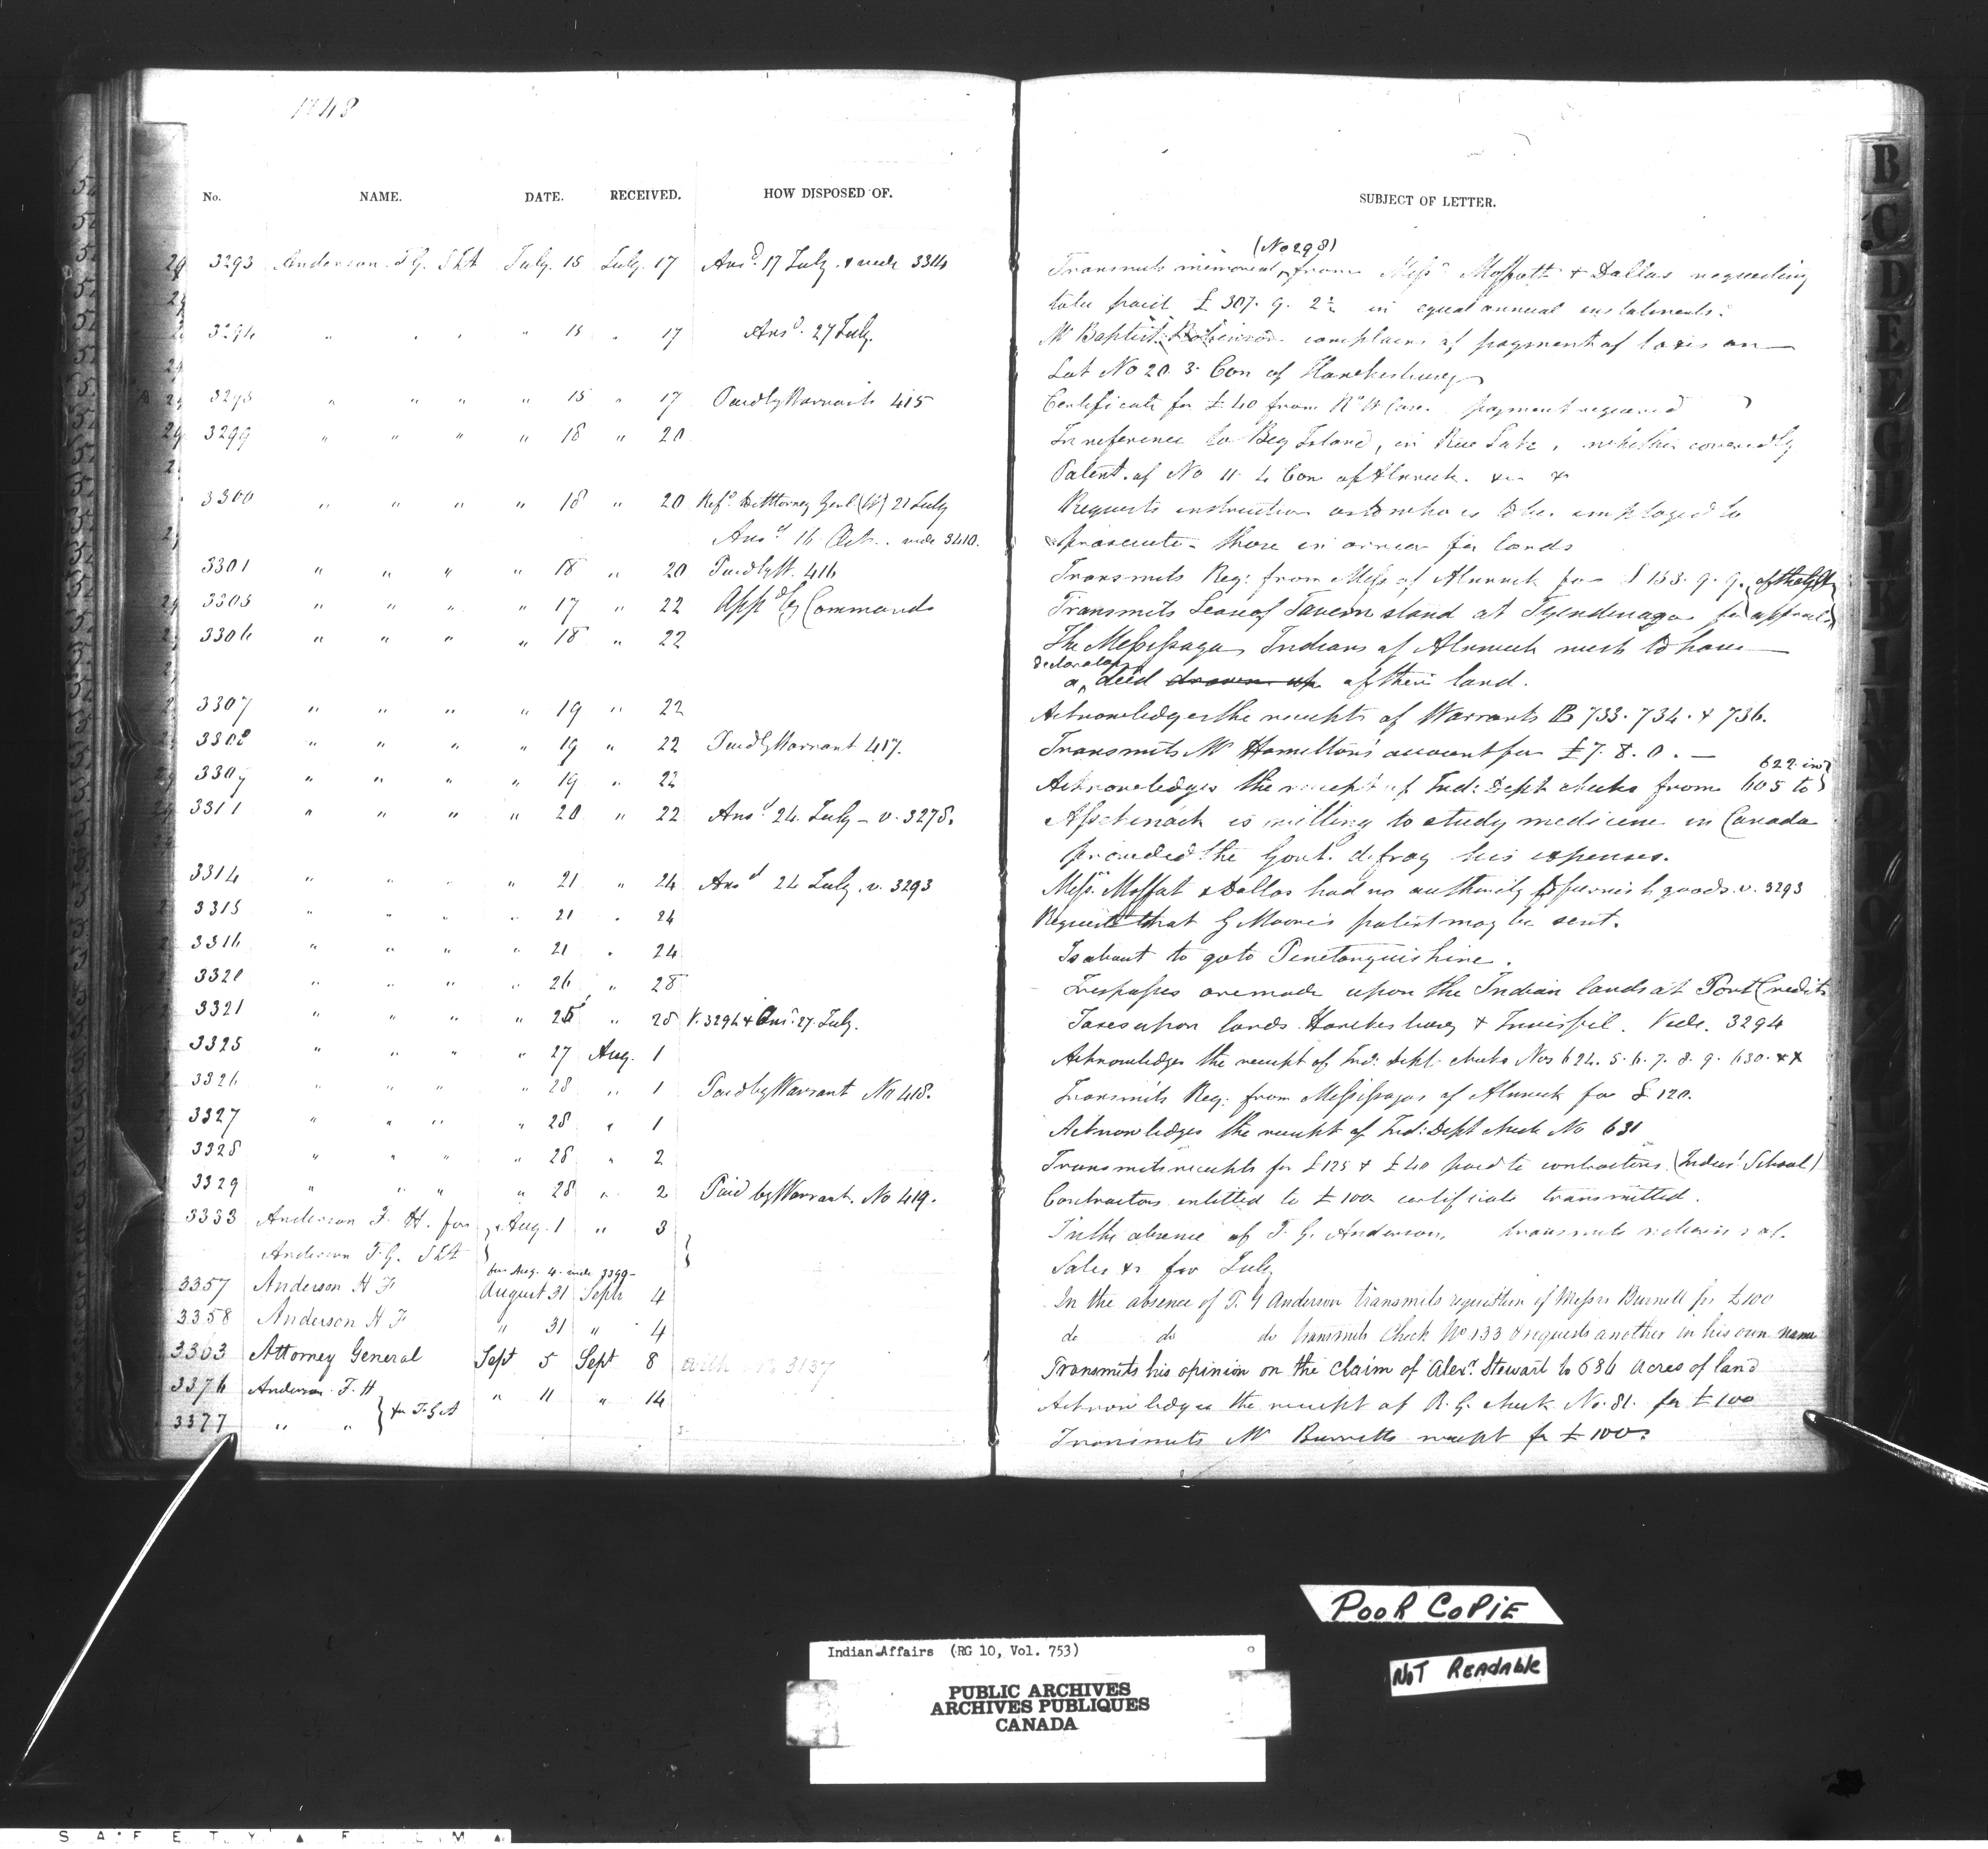 1848
No. NAME. DATE. RECEIVED. HOW DISPOSED OF. SUBJECT OF LETTER.
(No 298)
3293 Anderson T.G. SIA July. 15 July. 17 Ansd. 17 July. & vide 3314 Transmits memorial, from Messrs Moffatt & Dallas requesting
to be paid £ 307. 9. 2½ in equal annual instalments.
3294 " " " " 15 " 17 Ansd. 27 July. Mr Baptist Robinson complains of payment of taxes on
Lot No 20. 3. Con of Hawkesbury
3295 " " " " 15 " 17 Paid by Warrant 415 Certificate for £40 from payment required
3299 " " " " 18 " 20 In reference to Beg Island, in Rice Lake, whether covered by
Patent of No 11. 4 Con of Alnwick. &c &
3300 " " " " 18 " 20 Refd to Attorney Genl (W) 21 July Requests instruction as to who is to be employed to
Ansd 16 Oct. vide 3410. prosecute those in arrear for lands
3301 " " " " 18 " 20 Paid by W. 416 Transmits Req: from Miss of Alnwick for £ 153. 9. 9.
3305 " " " " 17 " 22 Appd by Command Transmits Lease of Tavern stand at Tyendinaga for approval
3306 " " " " 18 " 22 The Messissaga Indians of Alnwick wish to have
declaratory
a deed drawn up of their land.
3307 " " " " 19 " 22 Acknowledges the receipts of Warrants B 733. 734. & 736.
3308 " " " " 19 " 22 Paid by Warrant 417. Transmits Mr Hamilton's account for £7. 8. 0. —
622 in
3309 " " " " 19 " 22 Acknowledges the receipt of Ind: Dept checks from 605 to
3311 " " " " 20 " 22 Ansd 24. July – v. 3278. Assekinack is willing to study medicine in Canada
provided the Govt. defray his expenses.
3314 " " " " 21 " 24 Ansd 24 July. v. 3293 Messrs Moffat & Dallas had no authority to furnish goods. v. 3293
3315 " " " " 21 " 24 Requests that G Moore's patent may be sent.
3316 " " " " 21 " 24 Is about to go to Penetanguishine.
3320 " " " " 26 " 28 Trespasses are made upon the Indian lands at Port Credit
3321 " " " " 25 " 28 V. 3294 & Ansd. 27. July. Taxes upon lands Hawkesbury & Innisfil. Vide. 3294
3325 " " " " 27 Aug. 1 Acknowledges the receipt of Ind: Dept. checks Nos 624. 5. 6. 7. 8. 9. 630. &&
3326 " " " " 28 " 1 Paid by Warrant No 418. Transmits Req: from Messissagas of Alnwick for £ 120.
3327 " " " " 28 " 1 Acknowledges the receipt of Ind: Dept check No 631
3328 " " " " 28 " 2 Transmits receipts for £125 & £40 paid to contractors (Indus' School)
3329 " " " " 28 " 2 Paid by Warrant. No 419. Contractors entitled to £100 certificate transmitted.
3333 Anderson F. H. for Aug. 1 " 3 In the absence of T. G. Anderson, transmits returns of
Anderson T.G. SIA Sales &c for July
for Aug. 4. vide 3399–
3357 Anderson H F August 31 Septr 4 In the absence of T. G Anderson transmits requisition of Messrs Burnett for £100
3358 Anderson H F " 31 " 4 do do do transmits Check No 133 & requests another in his own name
3363 Attorney General Sept 5 Sept 8 with No 3137 Transmits his opinion on the claim of Alexr. Stewart to 686 acres of land
3376 Anderson F. H for T.G.A " 11 " 14 Acknowledges the receipt of R. G. check No. 81. for £100
3377 " " Transmits Mr Burnetts receipt for £100.
B
C
D
E
POOR COPIE
NOT READABLE
Indian Affairs (RG 10, Vol. 753)
PUBLIC ARCHIVES
ARCHIVES PUBLIQUES
CANADA
SAFETY FILM